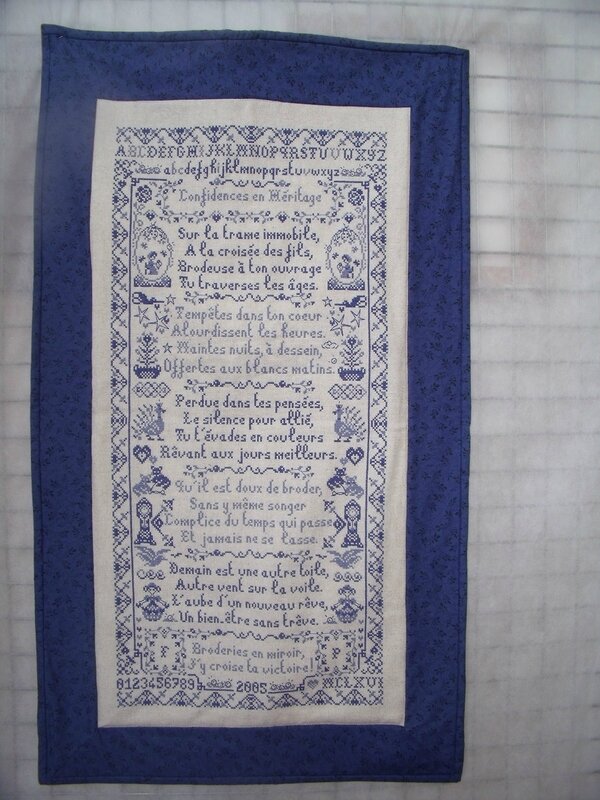 ABCDEFGHIJKLMNOPQRSTUVWXYZ
abcdefghijklmnopqrstuvwxyz
Confidences en Héritage
Sur la trame immobile,
A la croisée des fils,
Brodeuse à ton ouvrage
Tu traverses les âges.
Tempêtes dans ton coeur
Alourdissent les heures.
Maintes nuits, à dessein,
Offertes aux blancs matins.
Perdue dans tes pensées,
Le silence pour allié,
Tu t'évades en couleurs
Rêvant aux jours meilleurs.
Qu'il est doux de broder,
Sans y même songer
Complice du temps qui passe
Et jamais ne se lasse.
Demain est une autre toile,
Autre vent sur la voile.
L'aube d'un nouveau rêve,
Un bien-être sans trêve.
F Broderies en miroir, P
J'y croise ta victoire!
0123456789 2005